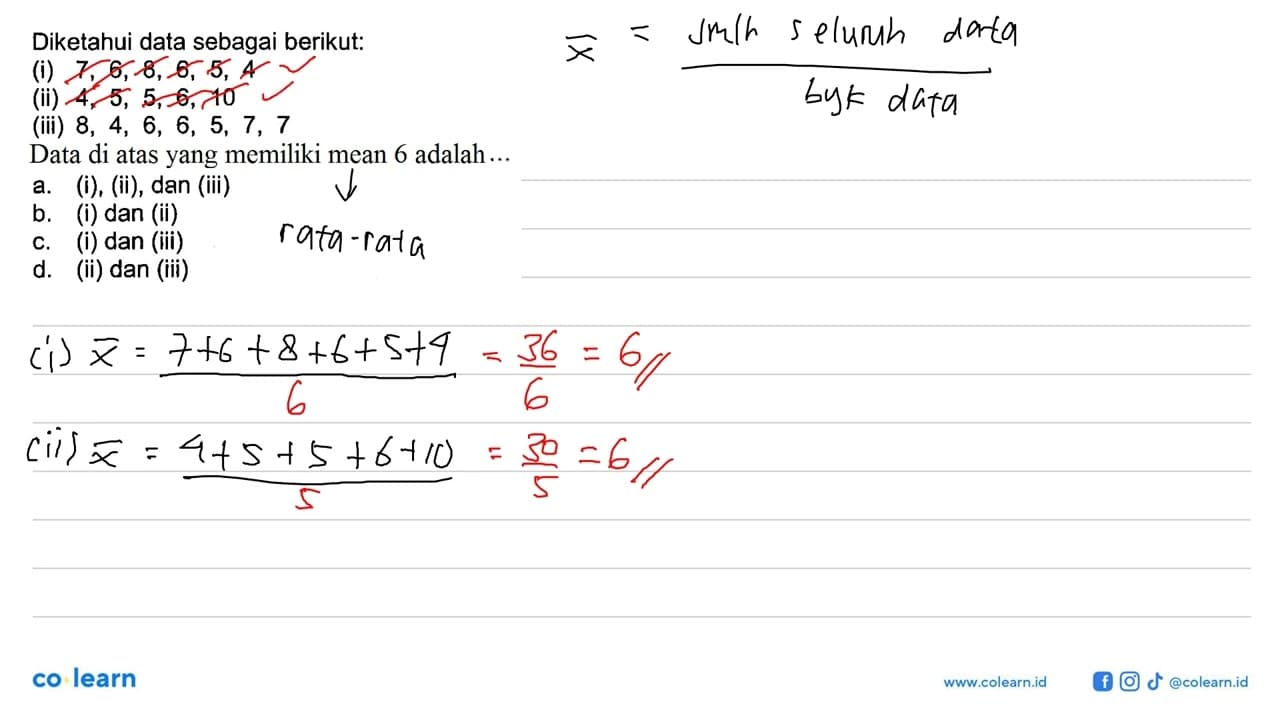 Diketahui data sebagai berikut:
(i) 7, 6, 8, 6, 5, 4
(ii) 4, 5, 5, 6, 10
(iii) 8, 4, 6, 6, 5, 7, 7
Data di atas yang memiliki mean 6 adalah...
a. (i), (ii), dan (iii)
b. (i) dan (ii)
c. (i) dan (iii)
d. (ii) dan (iii)
rata-rata
x̄ = jmlh seluruh data
byk data
(i) x̄ = 7+6+8+6+5+4 = 36 = 6
6 6
(ii) x̄ = 4+5+5+6+10 = 30 = 6
5 5
co learn
www.colearn.id @colearn.id